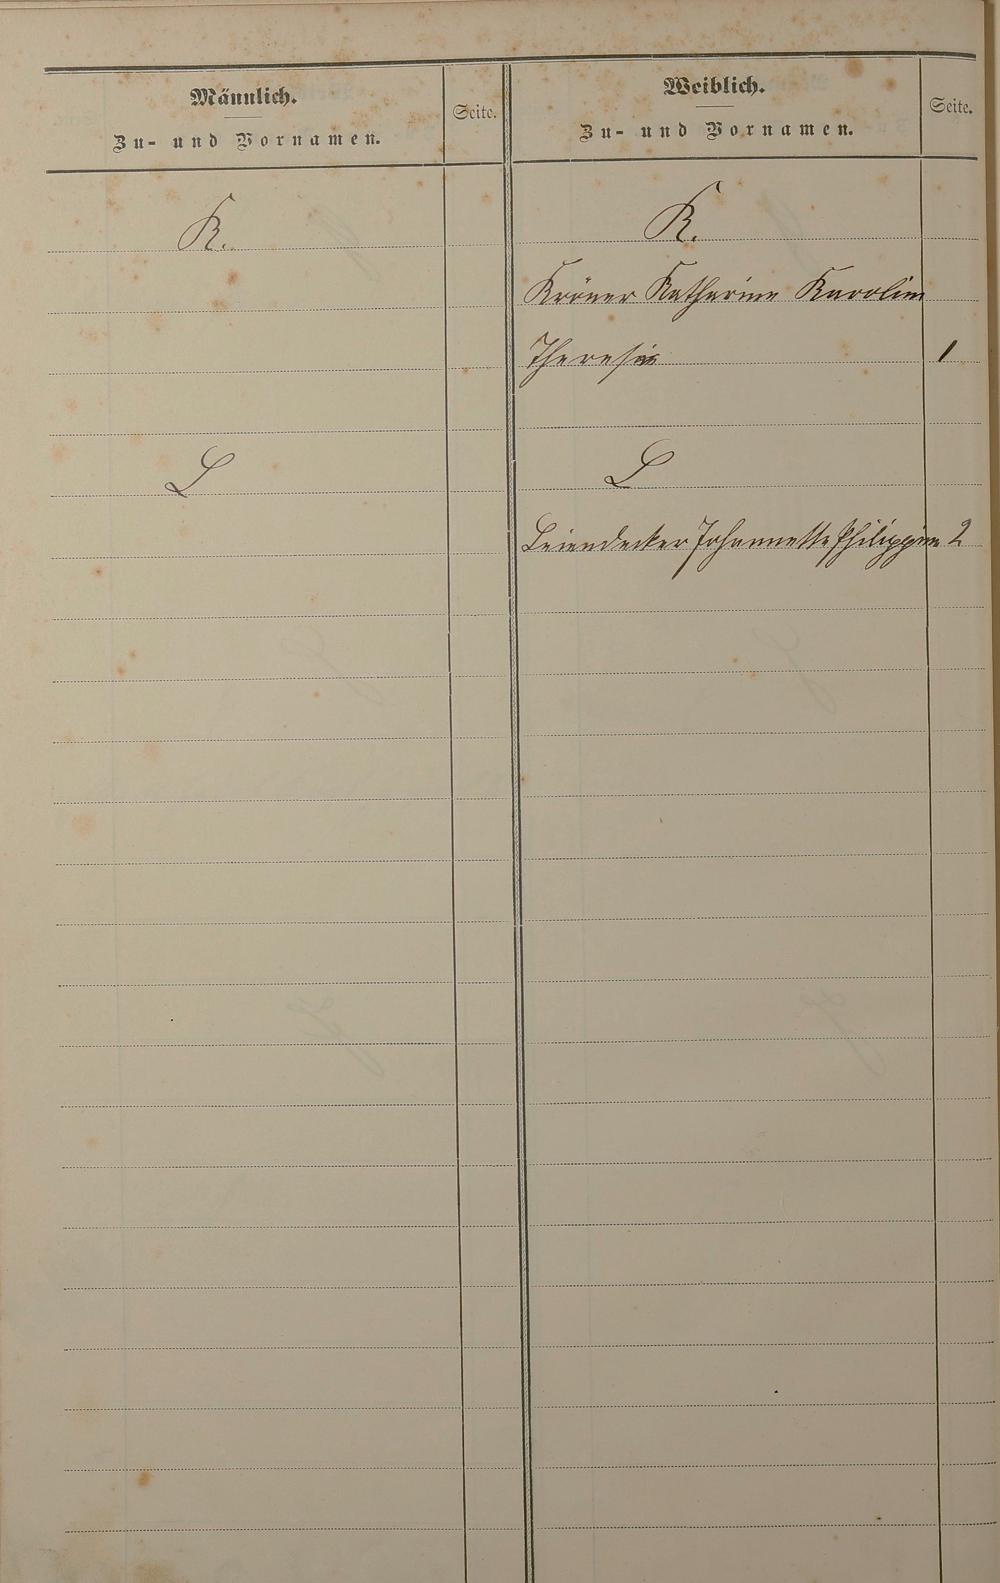 Männlich.
Zu- und Vornamen.
Seite.
Weiblich.
Zu- und Vornamen.
Seite.
K.
K.
Kröner Katharine Karoline
Theresia 1
L
L
Leiendecker Johannette Philippine 2